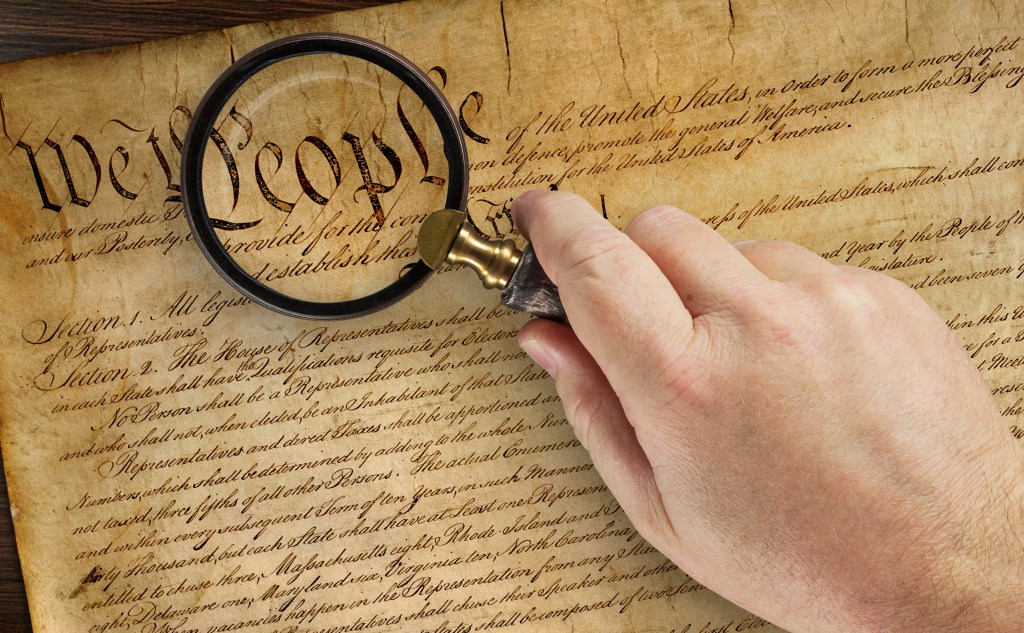 We the People of the United States, in order to form a more perfect
insure domestic T provide for the com on defence, promote the general Welfare, and secure the Blessing
and our Posterity, d establish this nstitution for the United States of America.
Section. 1. All legisl ress of the United States, which shall con
of Representatives.
Section 2. The House of Representatives shall be nd Year by the People of th
in each State shall have the Qualifications requisite for Electors gislature.
No Person shall be a Representative who shall not d been seven y
and who shall not, when elected, be an Inhabitant of that State
Representatives and direct Taxes shall be apportioned a hin this U
Numbers, which shall be determined by adding to the whole Num e for a
not taxed, three fifths of all other Persons. The actual Enumer t Meet
and within every subsequent Term of ten Years, in such Manner
thirty Thousand, but each State shall have at Least one Represen
entitled to chuse three, Massachusetts eight, Rhode Island and
eight, Delaware one, Maryland six, Virginia ten, North Carolina
When vacancies happen in the Representation from any State
Representatives shall chuse their Speaker and othe
shall be composed of two Sen